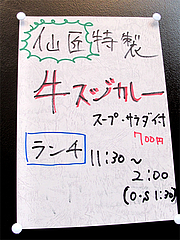 仙匠特製
牛スジカレー
スープ・サラダ付
700円
ランチ 11:30～
2:00
(O・S 1:30)